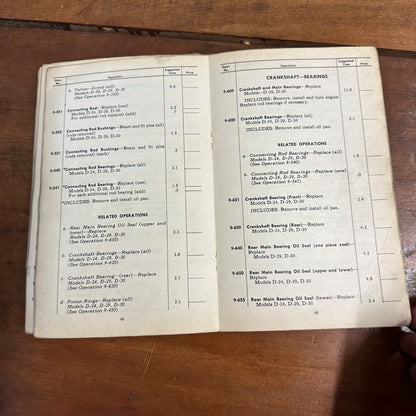 Oper. No.
Operation
Suggested Time
Price
b. Valves—Grind (all)
Models D-24, D-29, D-30
(See Operation 9-330)
6.6
9-501
Connecting Rod—Replace (one)
Models D-24, D-29, D-30
For additional rod replaced (add)
Connecting Rod Bushings—Ream and fit pins
(rods removed) (each)
Models D-24, D-29, D-30
.5
Connecting Rod Bushings—Ream and fit pins
(rods removed) (all)
Models D-24, D-29, D-30
Connecting Rod Bearings—Replace (all)
Models D-24, D-29, D-30
9-541
*Connecting Rod Bearing—Replace (one)
Models D-24, D-29, D-30
For each additional rod bearing (add)
1.8
.3
*INCLUDES: Remove and install oil pan.
RELATED OPERATIONS
a. Rear Main Bearing Oil Seal (upper and
lower)—Replace
Models D-24, D-29, D-30
(See Operation 9-650)
b. Crankshaft Bearings—Replace (all)
Models D-24, D-29, D-30
(See Operation 9-620)
3.8
c. Crankshaft Bearing—(rear)—Replace
Models D-24, D-29, D-30
(See Operation 9-632)
3.1
d. Piston Rings—Replace (all)
Models D-24, D-29, D-30
(See Operation 9-430)
3.1
48
Oper. No.
Operation
Suggested Time
Price
CRANKSHAFT—BEARINGS
9-600
Crankshaft and Main Bearings—Replace
Models—D-24, D-29, D-30
11.6
INCLUDES: Remove, install and tune engine.
Replace rod bearings if necessary.
9-620
Crankshaft Bearings—Replace (all)
Models D-24, D-29, D-30
5.1
INCLUDES: Remove and install oil pan.
RELATED OPERATIONS
a. Connecting Rod Bearings—Replace (all)
Models D-24, D-29, D-30
(See Operation 9-540)
b. Connecting Rod Bearings—Replace (one)
Models D-24, D-29, D-30
(See Operation 9-541)
.3
9-631
Crankshaft Bearing (Front)—Replace
Models D-24, D-29, D-30
INCLUDES: Remove and install oil pan.
Crankshaft Bearing (Rear)—Replace
Models D-24, D-29, D-30
9-640
Rear Main Bearing Oil Seal (one piece seal)—
Replace
Models D-24, D-29, D-30
9-650
Rear Main Bearing Oil Seal (upper and lower)—
Replace
Models D-24, D-29, D-30
4.9
9-655
Rear Main Bearing Oil Seal (lower)—Replace
Models D-24, D-29, D-30
2.4